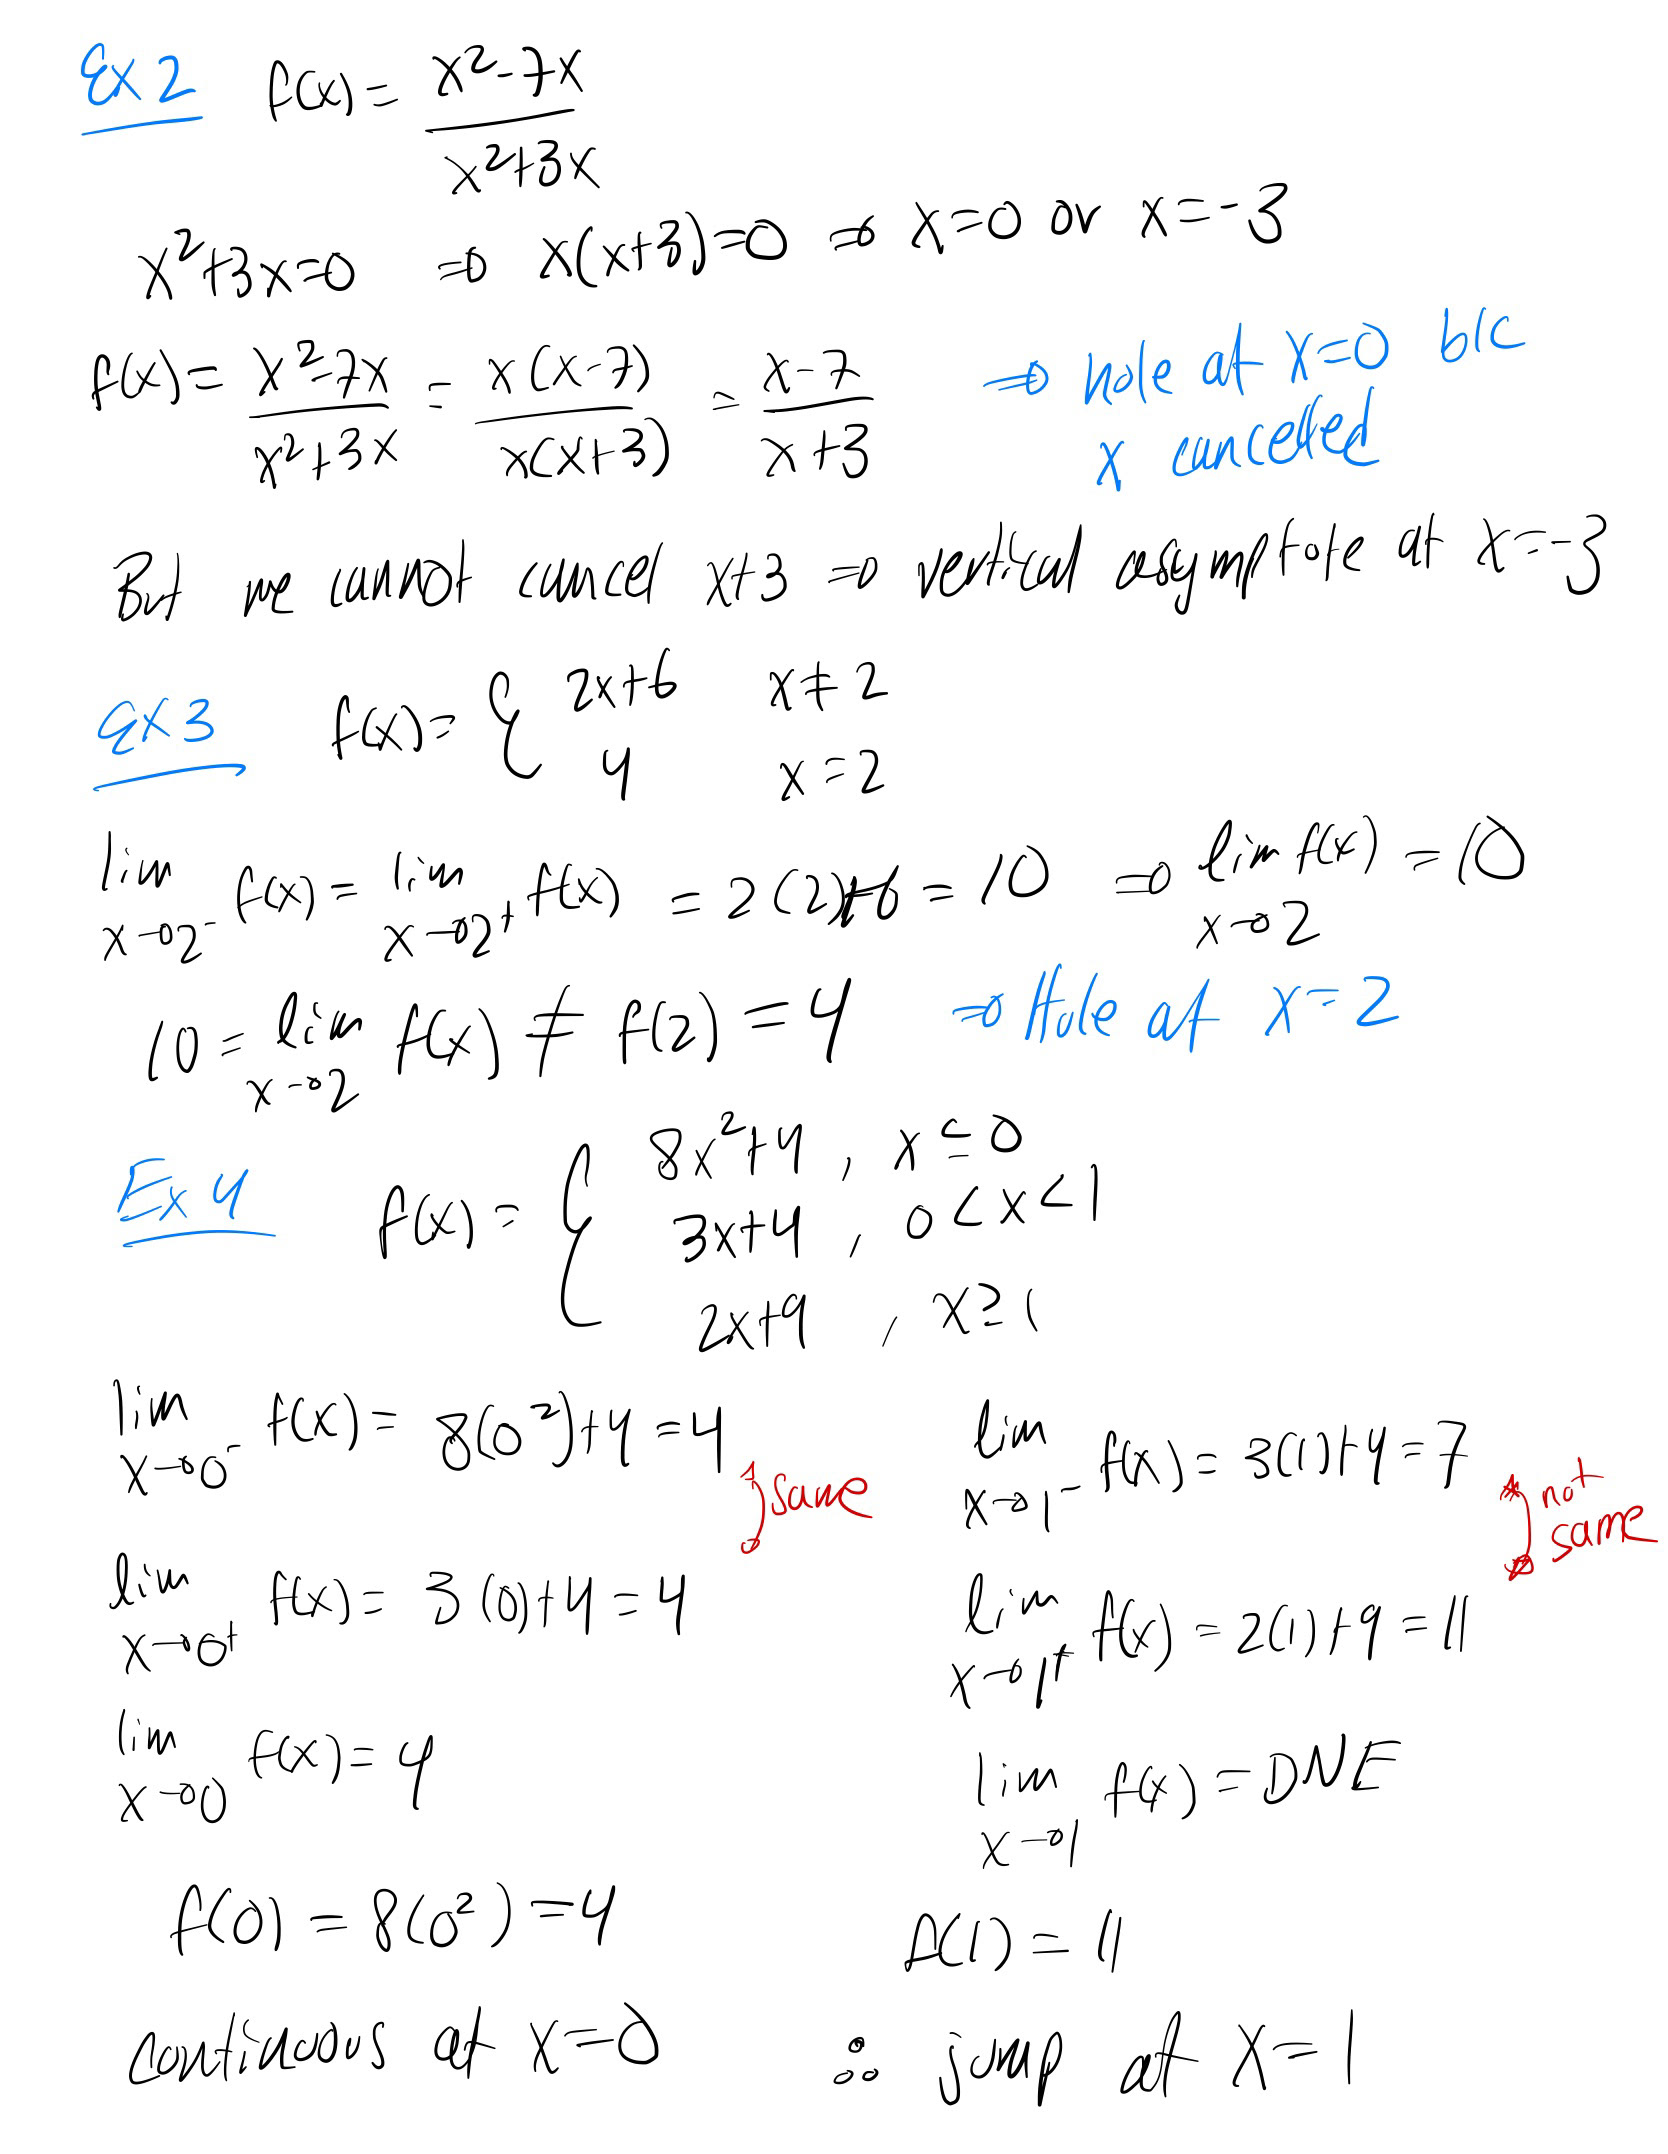 Ex 2 f(x) = (x²-7x)/(x²+3x)
x²+3x=0 ⇒ x(x+3)=0 ⇒ x=0 or x=-3
f(x) = (x²-7x)/(x²+3x) = x(x-7)/x(x+3) = (x-7)/(x+3) ⇒ hole at x=0 b/c
x cancelled
But we cannot cancel x+3 ⇒ vertical asymptote at x=-3
Ex 3 f(x) = { 2x+6 x≠2
4 x=2
lim x→2⁻ f(x) = lim x→2⁺ f(x) = 2(2)+6 = 10 ⇒ lim x→2 f(x) = 10
10 = lim x→2 f(x) ≠ f(2) = 4 ⇒ Hole at x=2
Ex 4 f(x) = { 8x²+4, x≤0
3x+4, 0<x<1
2x+9, x≥1
lim x→0⁻ f(x) = 8(0²)+4 = 4
same
lim x→0⁺ f(x) = 3(0)+4 = 4
lim x→0 f(x) = 4
f(0) = 8(0²) = 4
continuous at x=0
lim x→1⁻ f(x) = 3(1)+4 = 7
not
same
lim x→1⁺ f(x) = 2(1)+9 = 11
lim x→1 f(x) = DNE
f(1) = 11
∴ jump at x=1